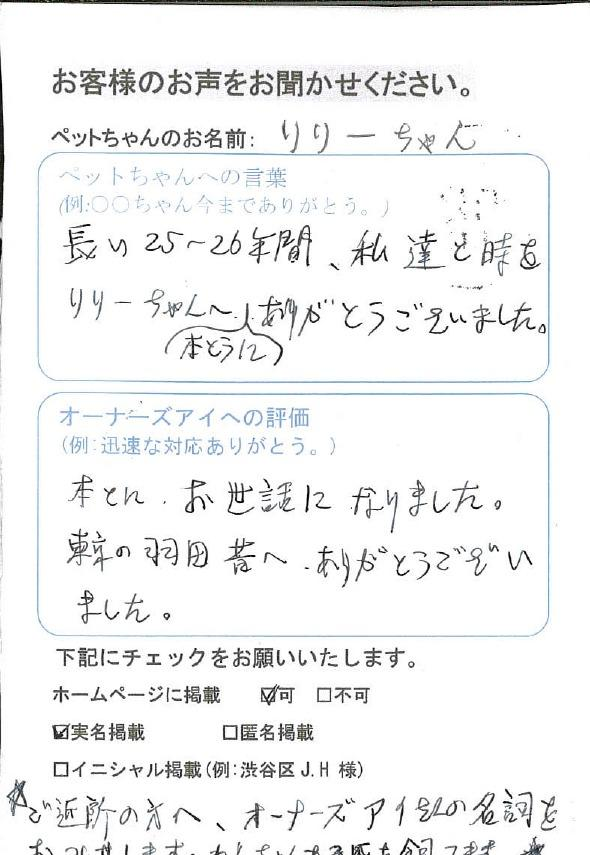 お客様のお声をお聞かせください。
ペットちゃんのお名前: りりーちゃん
ペットちゃんへの言葉
(例:○○ちゃん今までありがとう。)
長い25~26年間、私達と時を
りりーちゃんへ、ありがとうございました。
(本とうに)
オーナーズアイへの評価
(例:迅速な対応ありがとう。)
本とに、お世話になりました。
東京の羽田 へ、ありがとうござい
ました。
下記にチェックをお願いいたします。
ホームページに掲載 ☑可 □不可
☑実名掲載 □匿名掲載
□イニシャル掲載(例:渋谷区J.H様)
ご近所の方へ、オーナーズアイさんの名詞を